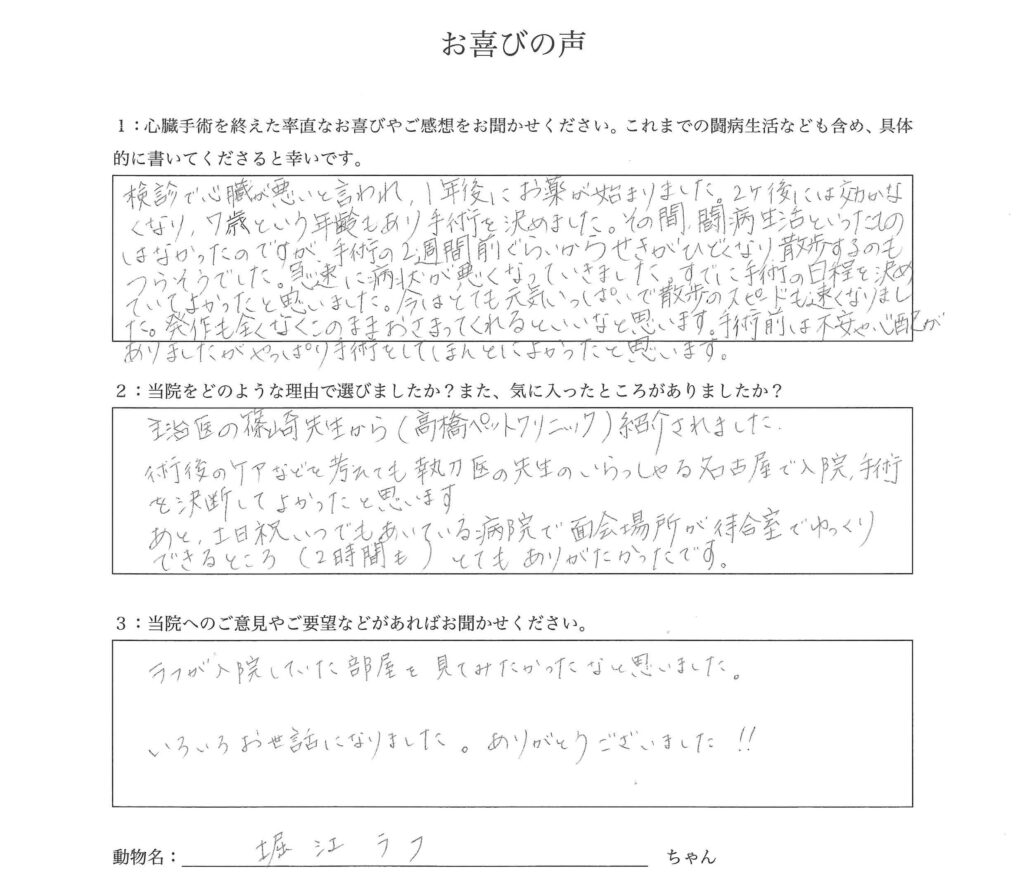 お喜びの声
１：心臓手術を終えた率直なお喜びやご感想をお聞かせください。これまでの闘病生活なども含め、具体
的に書いてくださると幸いです。
検診で心臓が悪いと言われ、1年後にお薬が始まりました。2ヶ後には効かな
くなり、7歳という年齢もあり手術を決めました。その間、闘病生活といったもの
はなかったのですが、手術の2週間前ぐらいからせきがひどくなり、散歩するのも
つらそうでした。急速に病状が悪くなっていきました。すでに手術の日程を決め
ていてよかったと思いました。今はとても元気いっぱいで散歩のスピードも速くなりまし
た。発作も全くなくこのままおさまってくれるといいなと思います。手術前は不安や心配が
ありましたがやっぱり手術をしてほんとによかったと思います。
２：当院をどのような理由で選びましたか？また、気に入ったところがありましたか？
主治医の篠崎先生から（高橋ペットクリニック）紹介されました.
術後のケアなどを考えても執刀医の先生のいらっしゃる名古屋で入院、手術
を決断してよかったと思います
あと、土日祝いつでもあいている病院で面会場所が待合室でゆっくり
できるところ（2時間も）とてもありがたかったです。
３：当院へのご意見やご要望などがあればお聞かせください。
ラフが入院していた部屋を見てみたかったなと思いました。
いろいろお世話になりました。ありがとうございました!!
動物名：堀江ラフ ちゃん